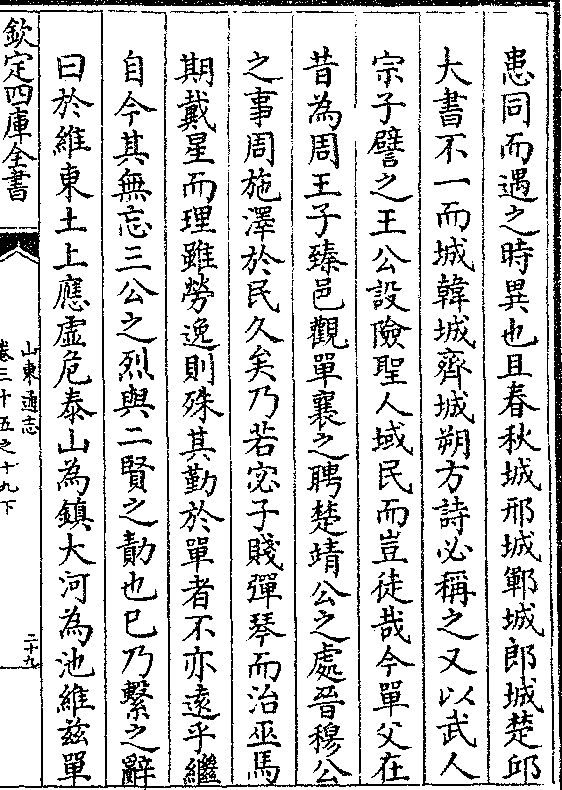 患同而遇之時異也且春秋城邢城鄆城郎城楚邱
大書不一而城韓城齊城朔方詩必稱之又以武人
宗子譬之王公設險聖人域民而豈徒哉今單父在
昔為周王子臻邑觀單襄之聘楚靖公之處晉穆公
之事周施澤於民久矣乃若宓子賤彈琴而治巫馬
期戴星而理雖勞逸則殊其勤於單者不亦遠乎繼
自今其無忘三公之烈與二賢之勣也巳乃繫之辭
曰於維東土上應虛危泰山為鎮大河為池維兹單
欽定四庫全書
山東通志
卷三十五之十九下
二十九